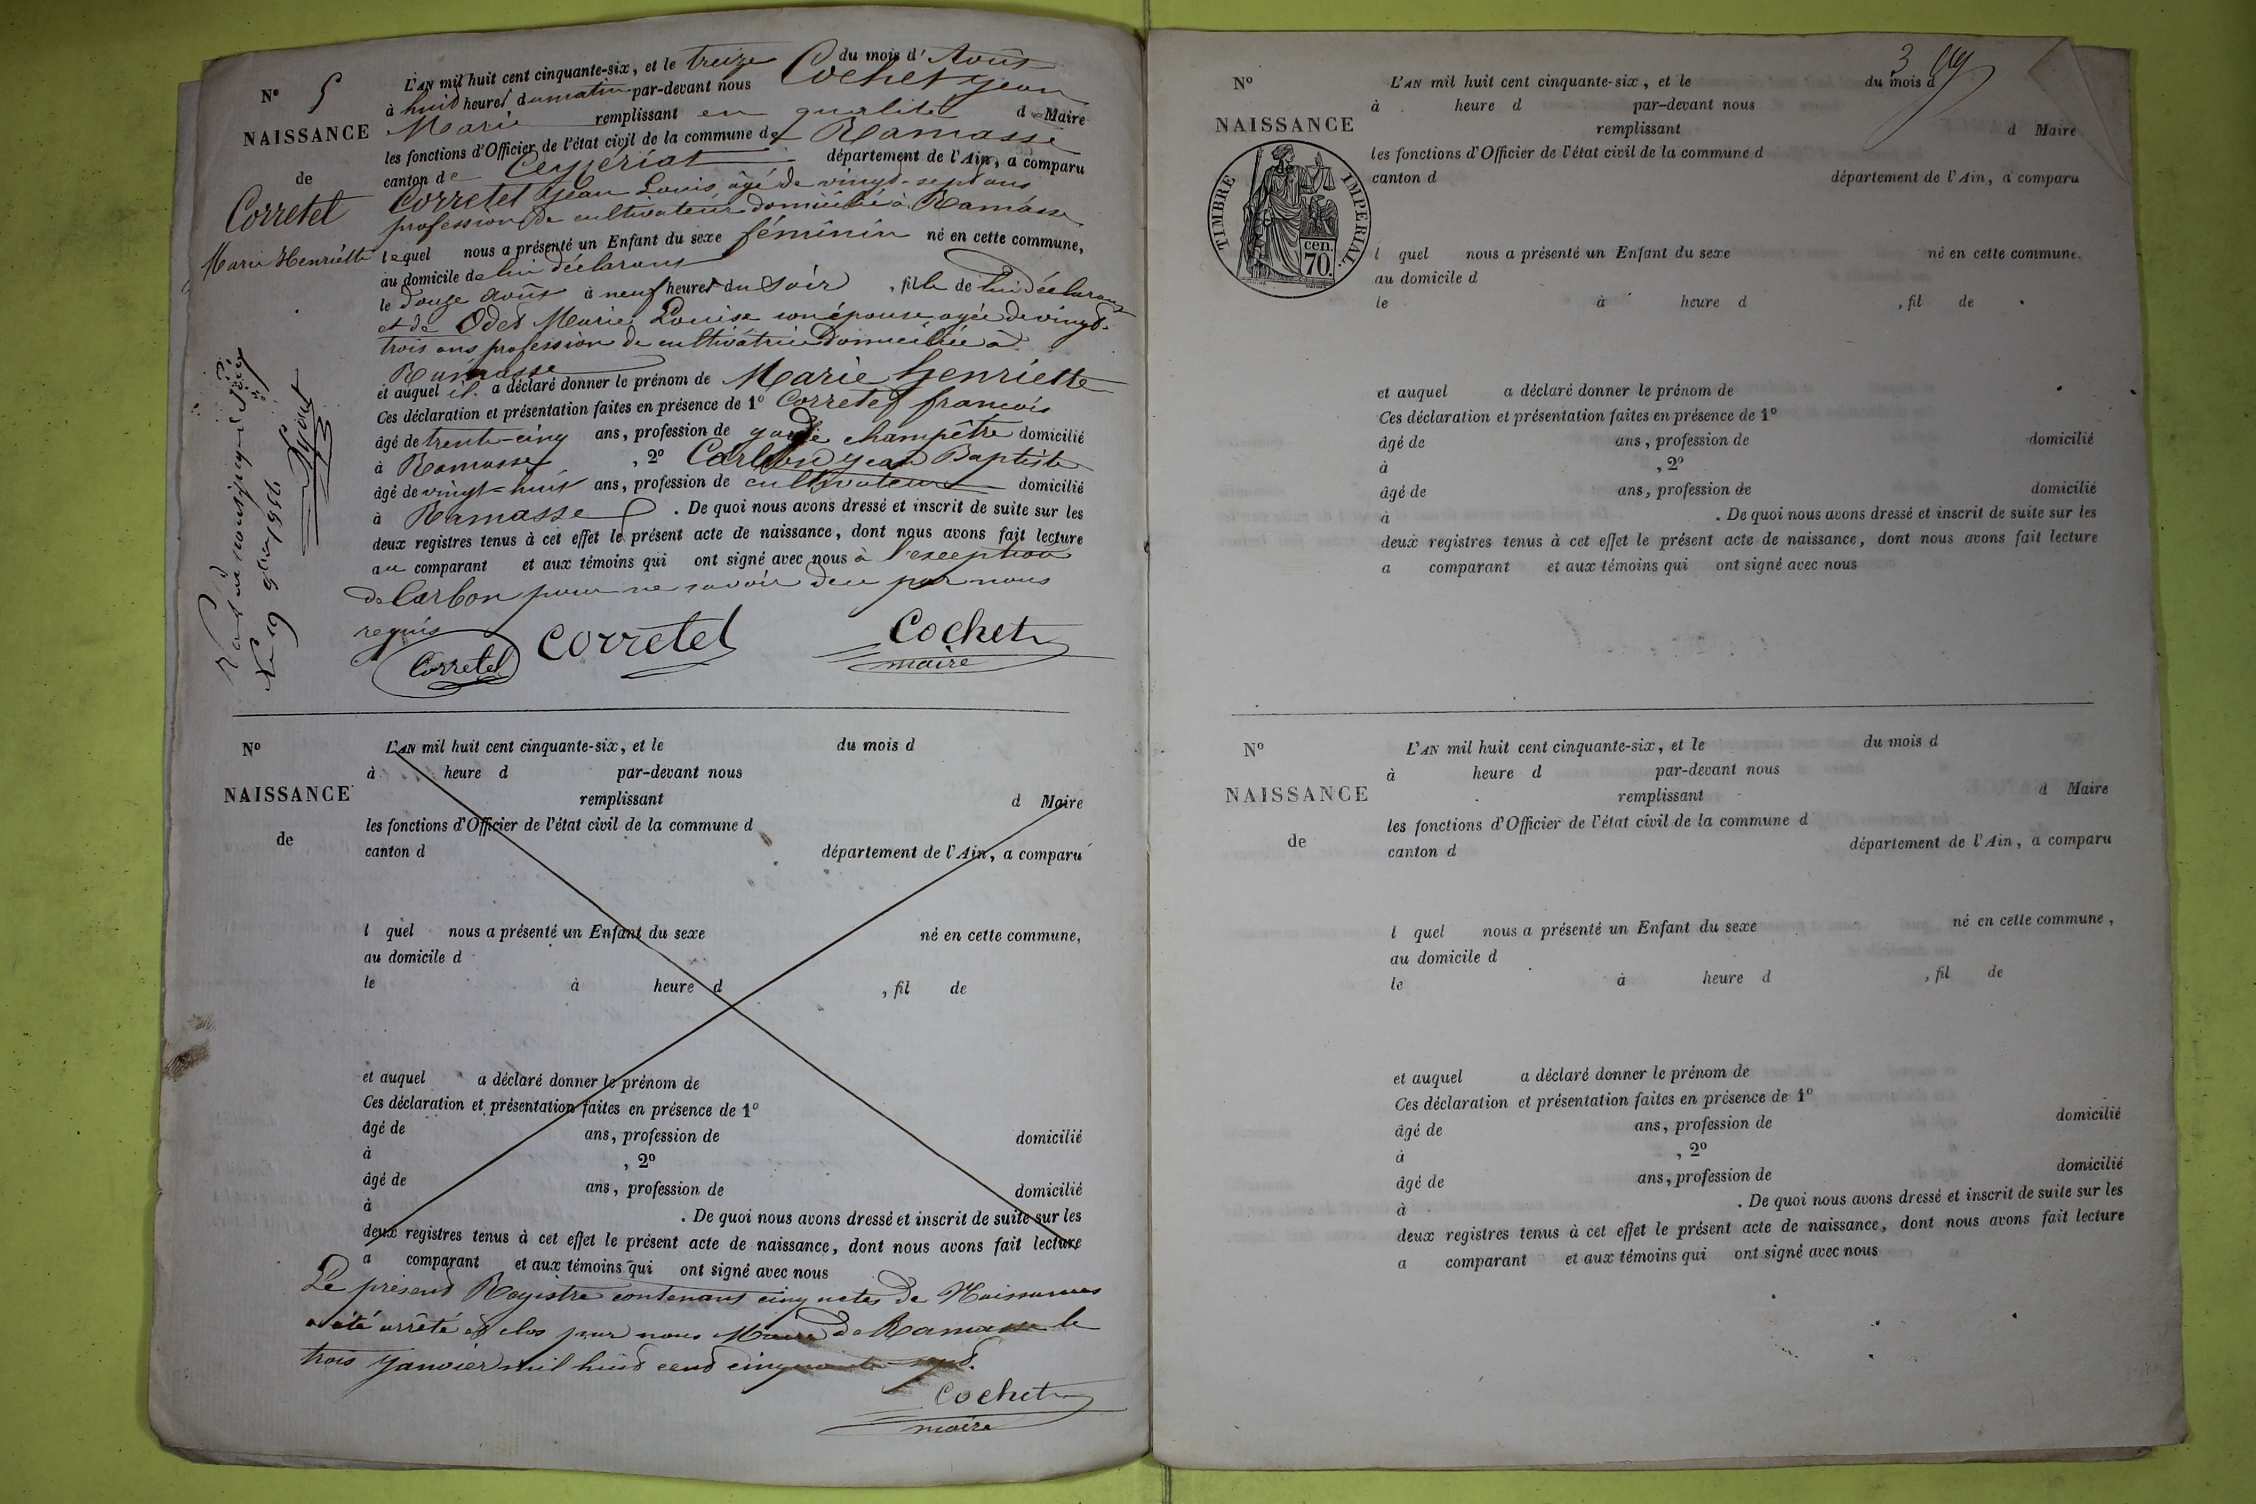 N° 5
NAISSANCE
de
Corretel
Marie Henriette
L'AN mil huit cent cinquante-six, et le treize du mois d'Août
à huit heures du matin par-devant nous Cochet Jean
Marie remplissant en qualité de Maire
les fonctions d'Officier de l'état civil de la commune de Ramasse
canton de Ceyzériat département de l'Ain, a comparu
Corretel Jean Louis âgé de vingt-sept ans
profession de cultivateur domicilié à Ramasse
lequel nous a présenté un Enfant du sexe féminin né en cette commune,
au domicile de lui déclarant
le Douze août à neuf heures du Soir, fille de lui déclarant
et de Odet Marie Louise son épouse agée de vingt-
trois ans profession de cultivatrice domiciliée à
Ramasse
et auquel il a déclaré donner le prénom de Marie henriette
Ces déclaration et présentation faites en présence de 1° Corretel françois
âgé de trente-cinq ans, profession de garde champêtre domicilié
à Ramasse, 2° Carbon Jean Baptiste
âgé de vingt-huit ans, profession de cultivateur domicilié
à Ramasse. De quoi nous avons dressé et inscrit de suite sur les
deux registres tenus à cet effet le présent acte de naissance, dont nous avons fait lecture
au comparant et aux témoins qui ont signé avec nous à l'exception
de Carbon pour ne savoir de ce par nous
requis
Corretel Corretel Cochet
maire
Le 19 1856
N°
NAISSANCE
de
L'AN mil huit cent cinquante-six, et le du mois d
à heure d par-devant nous
remplissant d Maire
les fonctions d'Officier de l'état civil de la commune d
canton d département de l'Ain, a comparu
l quel nous a présenté un Enfant du sexe né en cette commune,
au domicile d
le à heure d , fil de
et auquel a déclaré donner le prénom de
Ces déclaration et présentation faites en présence de 1°
âgé de ans, profession de domicilié
à , 2°
âgé de ans, profession de domicilié
à . De quoi nous avons dressé et inscrit de suite sur les
deux registres tenus à cet effet le présent acte de naissance, dont nous avons fait lecture
a comparant et aux témoins qui ont signé avec nous
Le présent Registre contenant cinq actes de Naissances
a été arrêté et clos par nous Maire de Ramasse le
trois Janvier mil huit cent cinquante-sept.
Cochet
maire
3
N°
NAISSANCE
TIMBRE IMPERIAL.
cen.
70.
L'AN mil huit cent cinquante-six, et le du mois d
à heure d par-devant nous
remplissant d Maire
les fonctions d'Officier de l'état civil de la commune d
canton d département de l'Ain, a comparu
l quel nous a présenté un Enfant du sexe né en cette commune.
au domicile d
le à heure d , fil de
et auquel a déclaré donner le prénom de
Ces déclaration et présentation faites en présence de 1°
âgé de ans, profession de domicilié
à , 2°
âgé de ans, profession de domicilié
à . De quoi nous avons dressé et inscrit de suite sur les
deux registres tenus à cet effet le présent acte de naissance, dont nous avons fait lecture
a comparant et aux témoins qui ont signé avec nous
N°
NAISSANCE
de
L'AN mil huit cent cinquante-six, et le du mois d
à heure d par-devant nous
remplissant d Maire
les fonctions d'Officier de l'état civil de la commune d
canton d département de l'Ain, a comparu
l quel nous a présenté un Enfant du sexe né en cette commune,
au domicile d
le à heure d , fil de
et auquel a déclaré donner le prénom de
Ces déclaration et présentation faites en présence de 1°
âgé de ans, profession de domicilié
à , 2°
âgé de ans, profession de domicilié
à . De quoi nous avons dressé et inscrit de suite sur les
deux registres tenus à cet effet le présent acte de naissance, dont nous avons fait lecture
a comparant et aux témoins qui ont signé avec nous